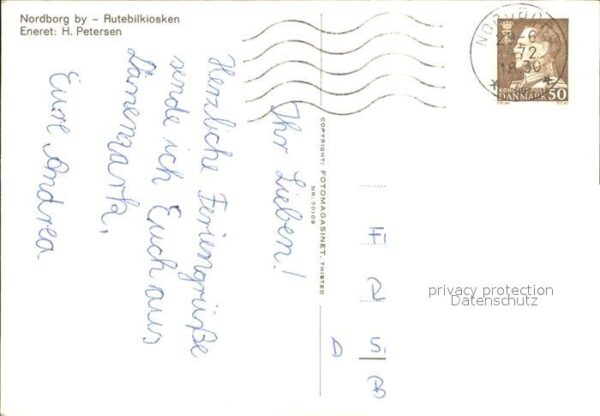 Nordborg by – Rutebilkiosken
Eneret: H. Petersen
NORDBORG
6
72
18.30
KONGELIG POST
DANMARK 50
Ihr Lieben!
Herzliche Feriengrüße
sende ich Euch aus
Dänemark,
Eure Andrea
COPYRIGHT: FOTOMAGASINET, THISTED
NR. 70103
D
privacy protection
Datenschutz